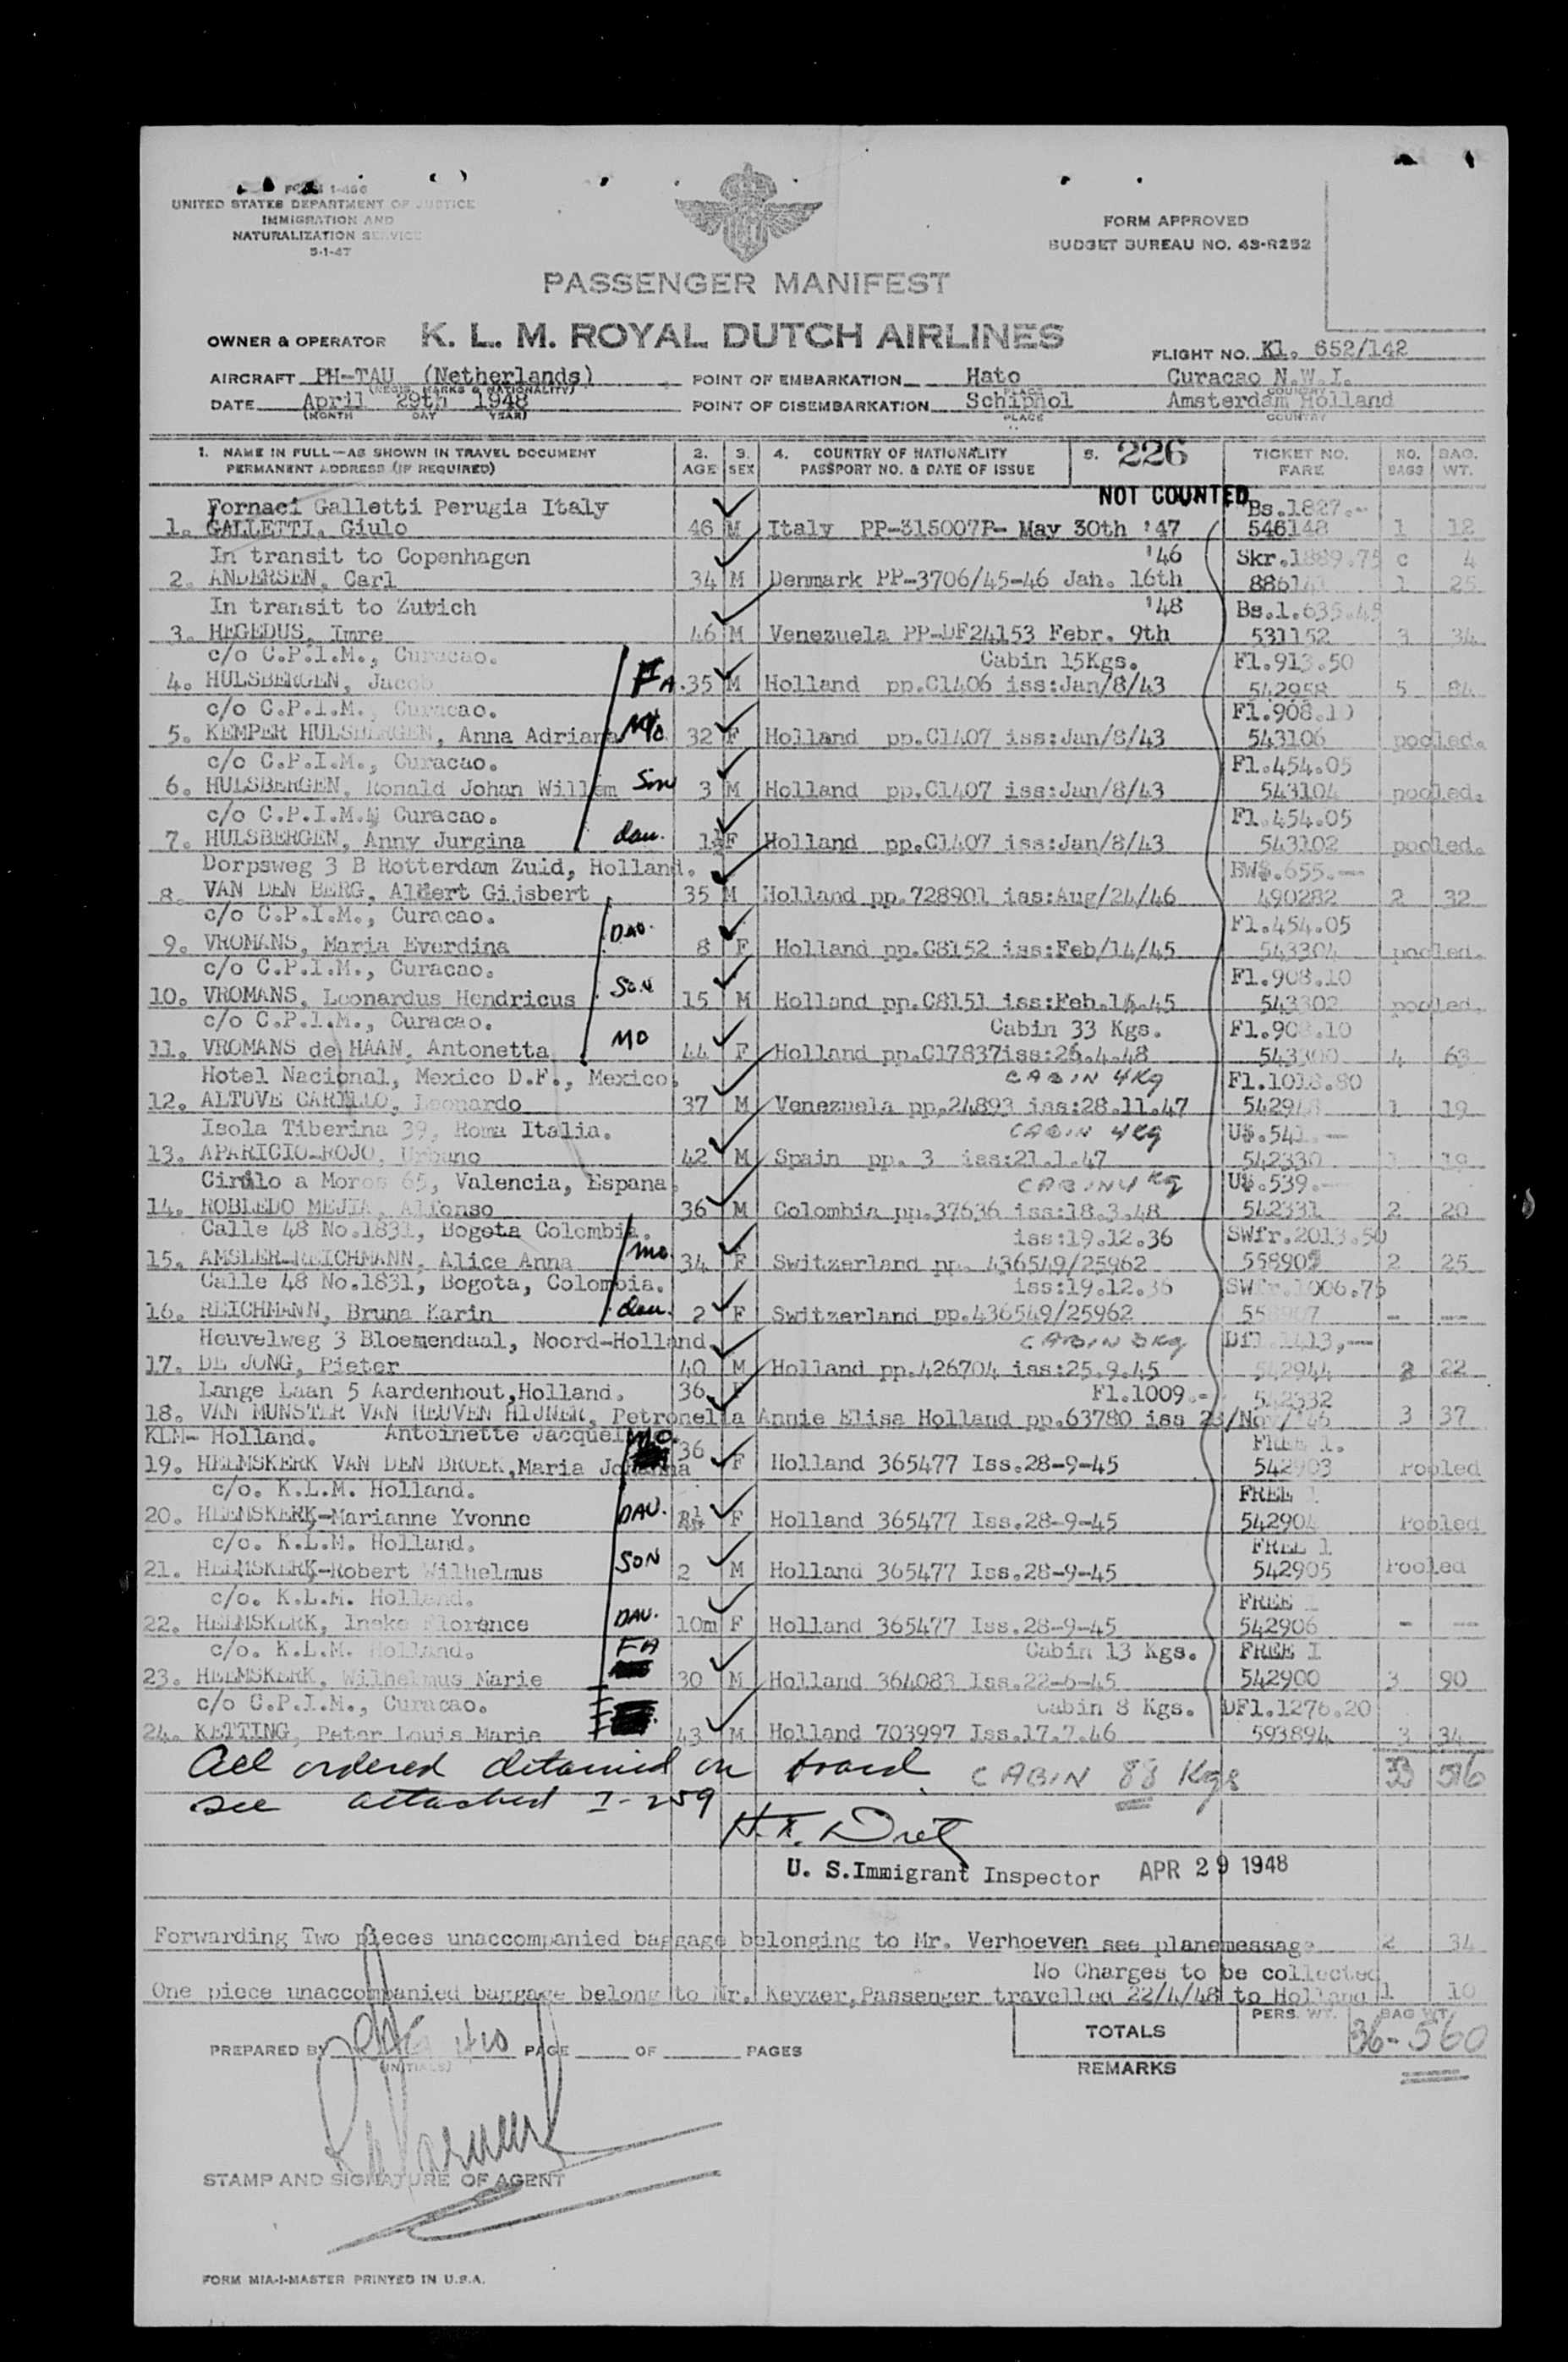 FORM I-466
UNITED STATES DEPARTMENT OF JUSTICE
IMMIGRATION AND
NATURALIZATION SERVICE
5-1-47
FORM APPROVED
BUDGET BUREAU NO. 43-R252
PASSENGER MANIFEST
OWNER & OPERATOR K. L. M. ROYAL DUTCH AIRLINES
FLIGHT NO. Kl. 652/142
AIRCRAFT PH-TAU (Netherlands) POINT OF EMBARKATION Hato Curacao N.W.I.
(REGIS. MARKS & NATIONALITY) PLACE COUNTRY
DATE April 29th 1948 POINT OF DISEMBARKATION Schiphol Amsterdam Holland
(MONTH DAY YEAR) PLACE COUNTRY
1. NAME IN FULL—AS SHOWN IN TRAVEL DOCUMENT 2. 3. 4. COUNTRY OF NATIONALITY 5. 226 TICKET NO. NO. BAG.
PERMANENT ADDRESS (IF REQUIRED) AGE SEX PASSPORT NO. & DATE OF ISSUE FARE BAGS WT.
NOT COUNTED
Fornaci Galletti Perugia Italy Bs.1827.--
1. GALLETTI, Giulo 46 M Italy PP-315007P- May 30th '47 546148 1 12
In transit to Copenhagen '46 Skr.1889.75 c 4
2. ANDERSEN, Carl 34 M Denmark PP-3706/45-46 Jah. 16th 886141 1 25
In transit to Zurich '48 Bs.1.635.45
3. HEGEDUS, Imre 46 M Venezuela PP-DF24153 Febr. 9th 531152 3 34
c/o C.P.I.M., Curacao. Cabin 15Kgs. Fl.913.50
4. HULSBERGEN, Jacob FA. 35 M Holland pp.C1406 iss:Jan/8/43 542958 5 84
c/o C.P.I.M., Curacao. Fl.908.10
5. KEMPER HULSBERGEN, Anna Adriana Mo 32 F Holland pp.C1407 iss:Jan/8/43 543106 pooled.
c/o C.P.I.M., Curacao. Fl.454.05
6. HULSBERGEN, Ronald Johan Willem Son 3 M Holland pp.C1407 iss:Jan/8/43 543104 pooled.
c/o C.P.I.M. Curacao. Fl.454.05
7. HULSBERGEN, Anny Jurgina dau. 1½ F Holland pp.C1407 iss:Jan/8/43 543102 pooled.
Dorpsweg 3 B Rotterdam Zuid, Holland. BW$.655.--
8. VAN DEN BERG, Albert Gijsbert 35 M Holland pp.728901 iss:Aug/24/46 490282 2 32
c/o C.P.I.M., Curacao. Fl.454.05
9. VROMANS, Maria Everdina DAU. 8 F Holland pp.C8152 iss:Feb/14/45 543304 pooled.
c/o C.P.I.M., Curacao. Fl.908.10
10. VROMANS, Leonardus Hendricus SON 15 M Holland pp.C8151 iss:Feb.14.45 543302 pooled.
c/o C.P.I.M., Curacao. Cabin 33 Kgs. Fl.908.10
11. VROMANS de HAAN, Antonetta MO 44 F Holland pp.C17837iss:26.4.48 543300 4 63
Hotel Nacional, Mexico D.F., Mexico. CABIN 4Kg Fl.1018.80
12. ALTUVE CARILLO, Leonardo 37 M Venezuela pp.24893 iss:28.11.47 542948 1 19
Isola Tiberina 39, Roma Italia. CABIN 4Kg U$.541.—
13. APARICIO-ROJO, Urbano 42 M Spain pp. 3 iss:21.1.47 542330 1 19
Cirilo a Moros 65, Valencia, Espana. CABIN 4 Kg U$.539.—
14. ROBLEDO MEJIA, Alfonso 36 M Colombia pp.37636 iss:18.3.48 542331 2 20
Calle 48 No.1831, Bogota Colombia. iss:19.12.36 SWfr.2013.50
15. AMSLER-REICHMANN, Alice Anna mo. 34 F Switzerland pp. 436549/25962 558905 2 25
Calle 48 No.1831, Bogota, Colombia. iss:19.12.36 SWfr.1006.75
16. REICHMANN, Bruna Karin dau. 2 F Switzerland pp.436549/25962 558907 - --
Heuvelweg 3 Bloemendaal, Noord-Holland. CABIN 8Kg Dfl.1413,—
17. DE JONG, Pieter 40 M Holland pp.426704 iss:25.9.45 542944 2 22
Lange Laan 5 Aardenhout,Holland. 36 F Fl.1009.- 542332
18. VAN MUNSTER VAN HEUVEN HIJNER, Petronella Annie Elisa Holland pp.63780 iss 23/Nov/'46 3 37
KLM- Holland. Antoinette Jacqueline MO. FREE 1.
19. HEEMSKERK VAN DEN BROEK,Maria Johanna 36 F Holland 365477 Iss.28-9-45 542903 Pooled
c/o. K.L.M. Holland. FREE 1
20. HEEMSKERK-Marianne Yvonne DAU. F Holland 365477 Iss.28-9-45 542904 Pooled
c/o. K.L.M. Holland. FREE 1
21. HEEMSKERK-Robert Wilhelmus SON 2 M Holland 365477 Iss.28-9-45 542905 Pooled
c/o. K.L.M. Holland. FREE 1
22. HEEMSKERK, Ineke Florence DAU. 10m F Holland 365477 Iss.28-9-45 542906 - --
c/o. K.L.M. Holland. FA Cabin 13 Kgs. FREE I
23. HEEMSKERK, Wilhelmus Marie 30 M Holland 364083 Iss.22-6-45 542900 3 90
c/o C.P.I.M., Curacao. Cabin 8 Kgs. DFl.1276.20
24. KETTING, Peter Louis Marie 43 M Holland 703997 Iss.17.7.46 593894 3 34
All ordered detained on board. CABIN 88 Kgs 33 516
see attached I-259
U. S.Immigrant Inspector APR 29 1948
Forwarding Two pieces unaccompanied baggage belonging to Mr. Verhoeven see planemessage 2 34
No Charges to be collected
One piece unaccompanied baggage belong to Mr. Keyzer,Passenger travelled 22/4/48 to Holland 1 10
TOTALS PERS. WT. BAG WT.
36-560
PREPARED BY PAGE OF PAGES
(INITIALS)
REMARKS
STAMP AND SIGNATURE OF AGENT
FORM MIA-I-MASTER PRINTED IN U.S.A.